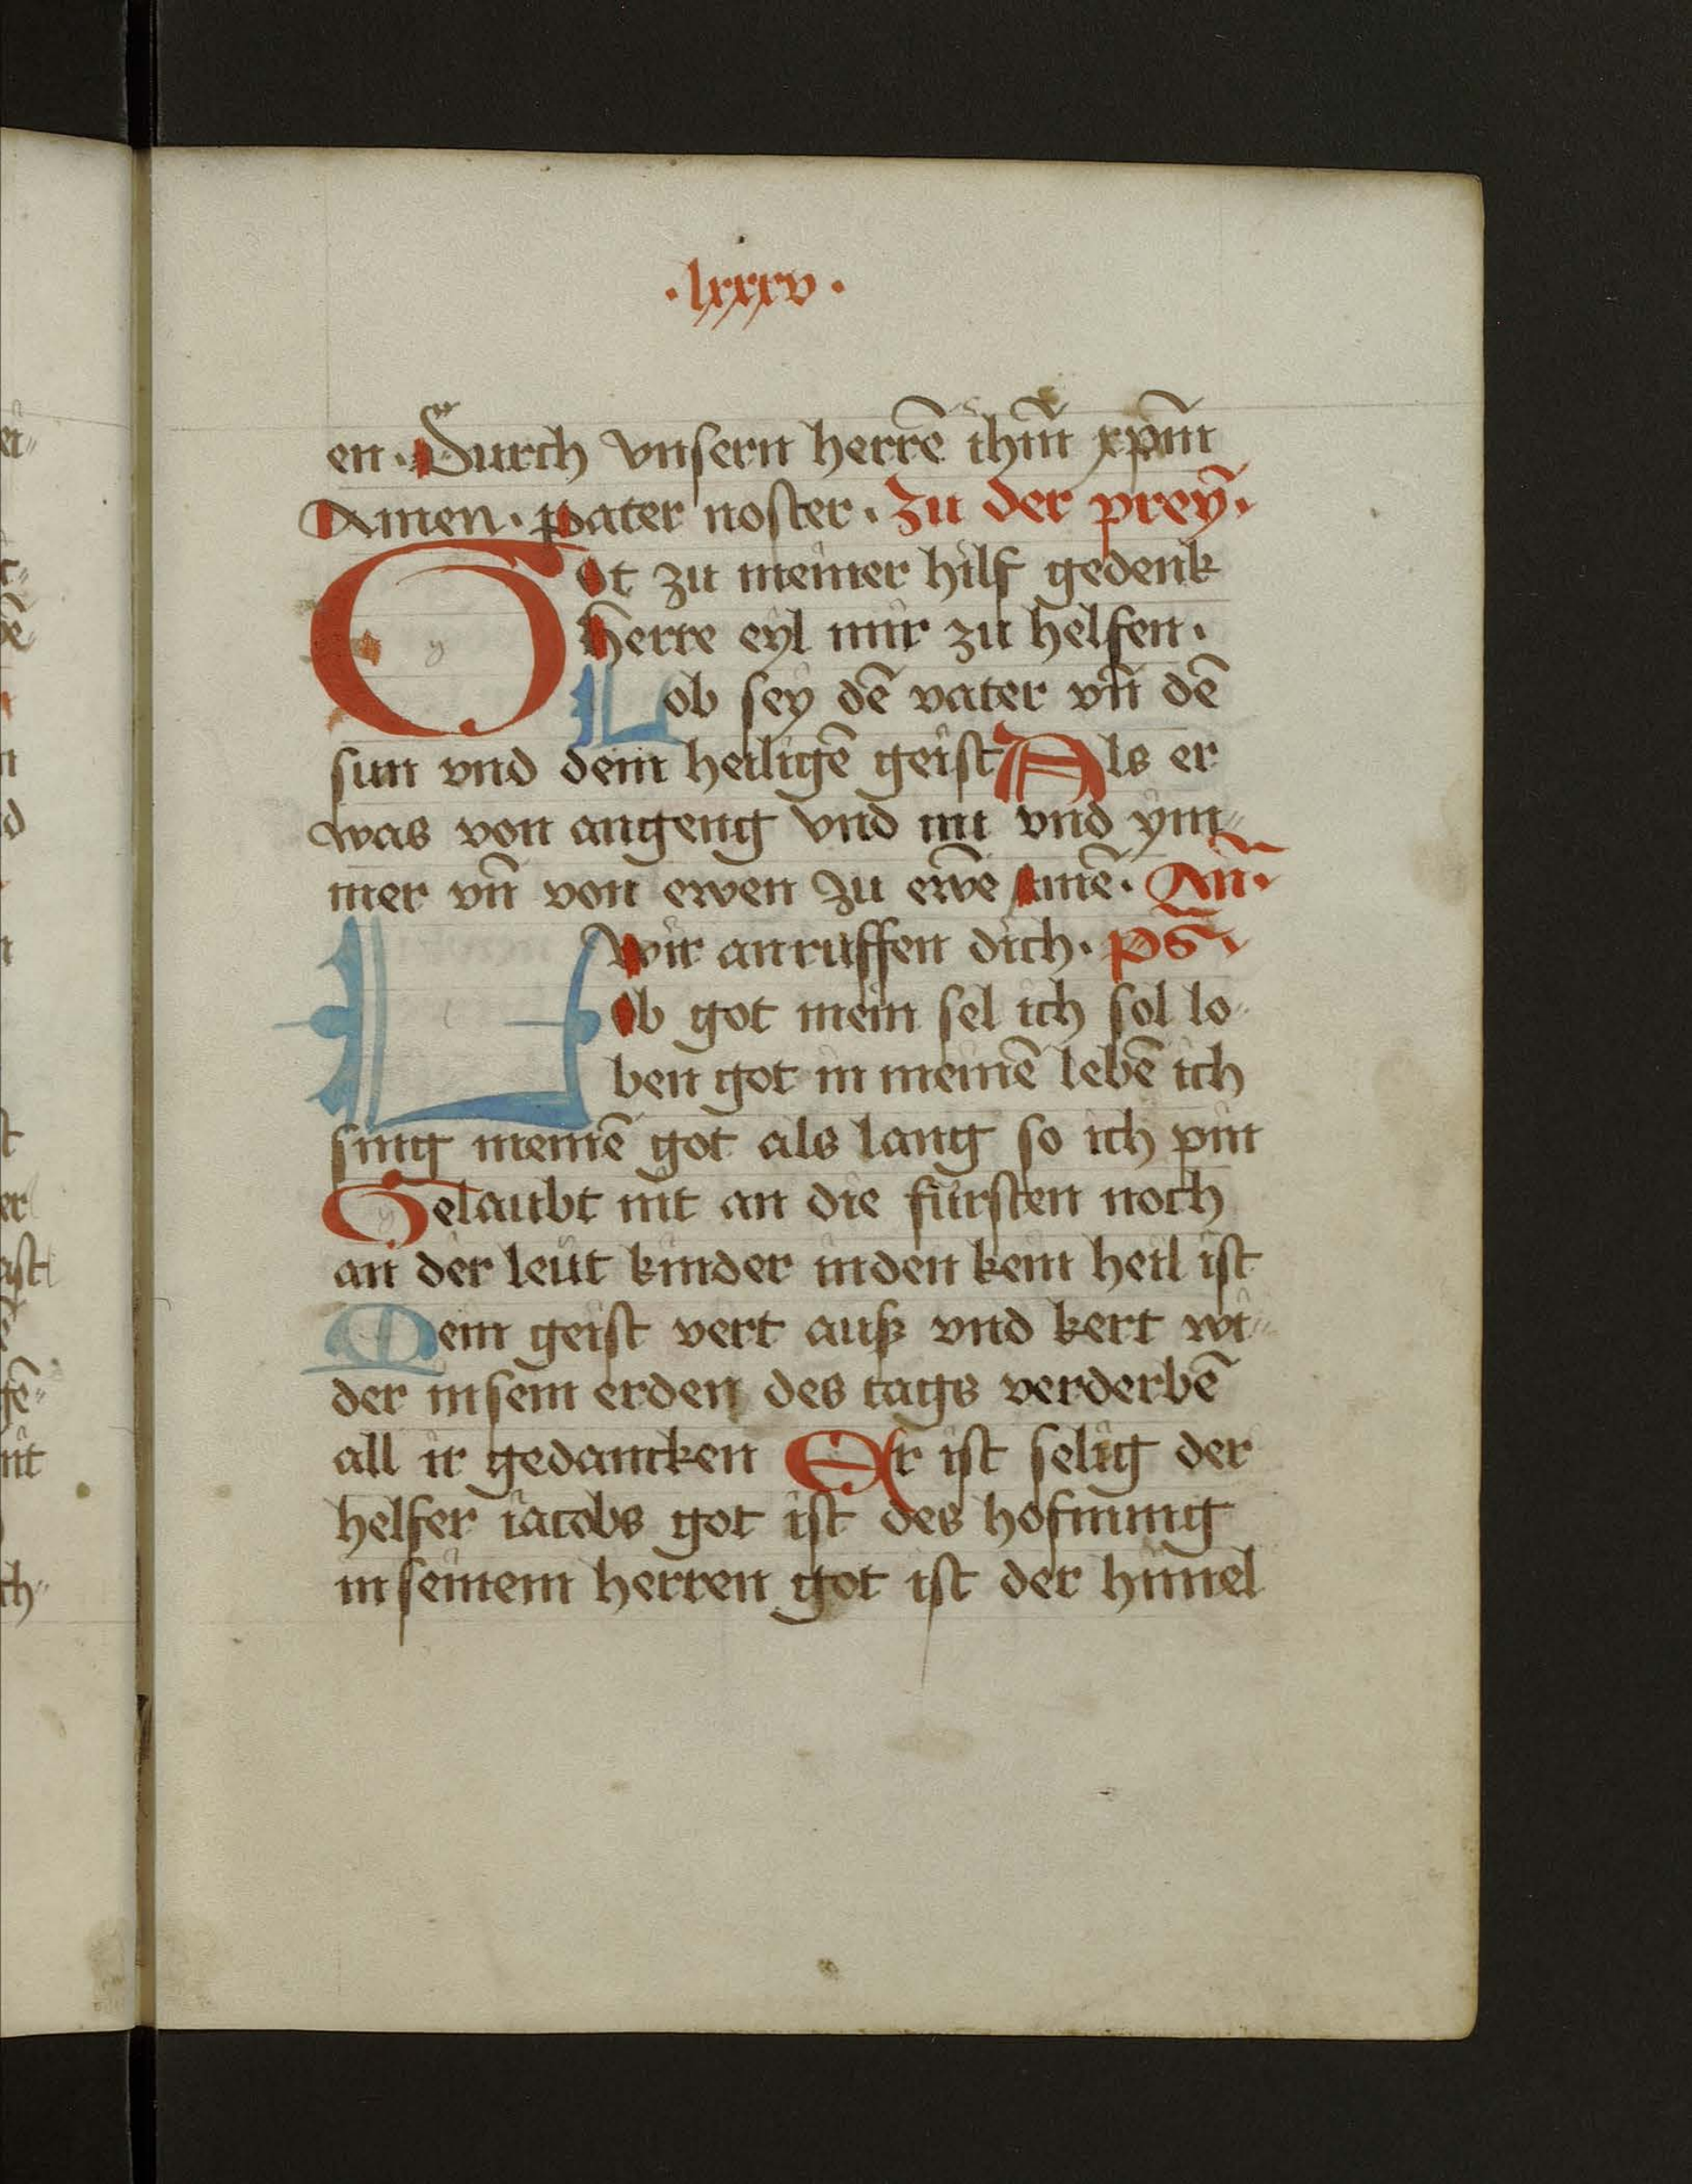 ·lxxxv·
en. Durch vnsern herrē ihm̄ xpm̄
Amen. pater noster. Zu der prey̅.
Got zu meiner hilf gedenk
herre eyl mir zu helfen.
Lob sey dē vater vn̄ dē
sun vnd dem heiligē geist Als er
was von angeng vnd nu vnd ym„
mer vn̄ von ewen zu ewē amē. An̄.
wir anruffen dich. ps̄
Lob got mein sel ich sol lo„
ben got in meinē lebē ich
sing meinē got als lang so ich pin
Gelaubt nit an die fürsten noch
an der leüt kinder inden kein heil ist
Dein geist vert auß vnd kert wi„
der in sein erden des tags verderbē
all ir gedancken Er ist selig der
helfer iacobs got ist des hofnung
in seinem herren got ist der himel